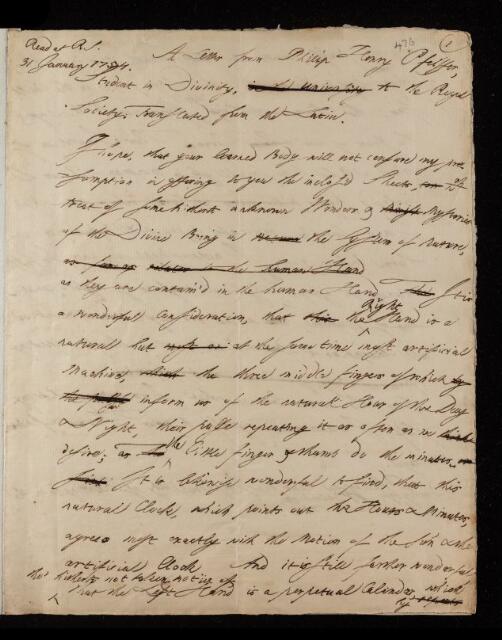 Read at R.S.
31 January 1754.
476
1
A Letter from Philip Henry Pfeiffer,
Student in Divinity, in the University to the Royal
Society, Translated from the Latin.
I hope, that your learned Body will not censure my pre
sumption in offering to you the inclos'd Sheets,
treat of some hitherto unknown Wonders & Mysteries
of the Divine Being in the System of Nature,
as far as relates to the human Hand
as they are contain'd in the human Hand. It is
a wonderful consideration, that the Right Hand is a
natural but at the same time most artificial
Machine, the three middle fingers of which
inform us of the natural Hour of the Day
& Night, their pulse repeating it as often as we
desire; as the little finger & thumb do the minutes.
It is likewise wonderful to find, that this
natural Clock, which points out the Hours & Minutes,
agrees most exactly with the Motion of the Sun & the
artificial Clock. And it is still farther wonderful
that the Left Hand is a perpetual Calendar, which
hitherto not taken notice of